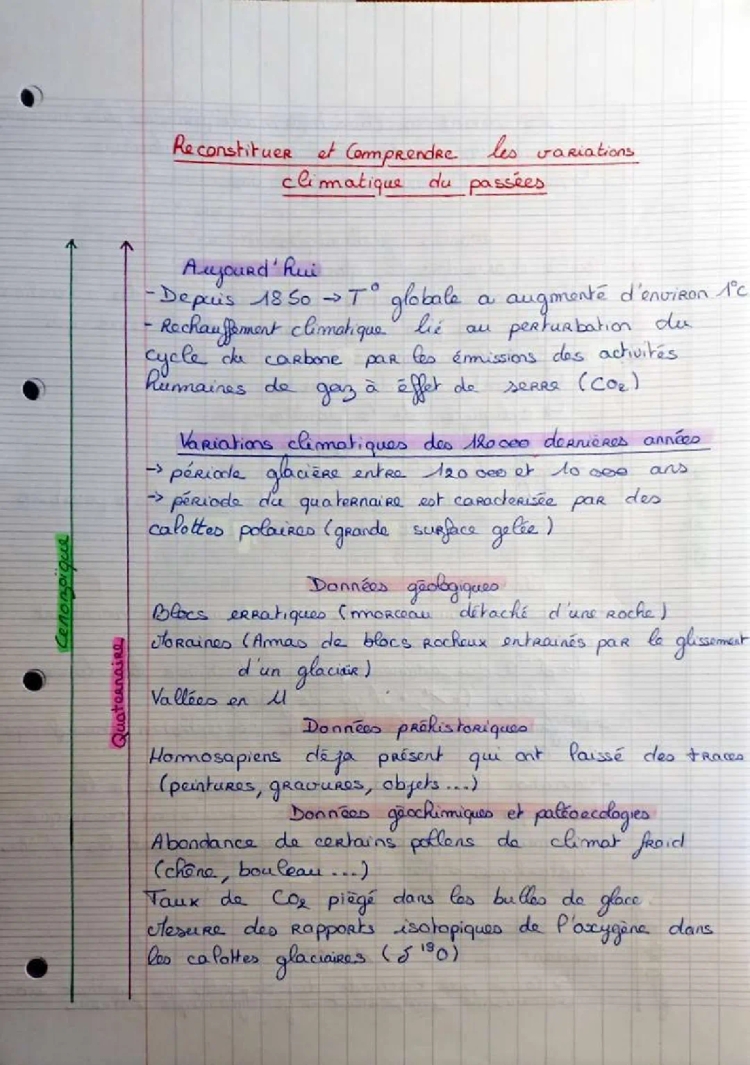 Reconstituer et Comprendre les variations
climatique du passées
Aujourd'hui
- Depuis 1850 → T° globale a augmenté d'environ 1°C
- Rechauffement climatique lié au perturbation du
cycle du carbone par les émissions des activités
humaines de gaz à éffet de serre (CO₂)
Variations climatiques des 120 000 dernières années
→ période glacière entre 120 000 et 10 000 ans
→ période du quaternaire est caracterisée par des
calottes polaires (grande surface gelée)
Cenozoïque
Quaternaire
Données géologiques
Blocs erratiques (morceau détaché d'une roche)
Moraines (Amas de blocs rocheux entrainés par le glissement
d'un glacier)
Vallées en U
Données préhistoriques
Homosapiens déja présent qui ont laissé des traces
(peintures, gravures, objets ...)
Données géochimiques et paléoecologies
Abondance de certains pollens de climat froid
(chêne, bouleau ...)
Taux de CO₂ piégé dans les bulles de glace
Mesure des rapports isotopiques de l'oxygène dans
les calottes glaciaires (δ ¹⁸O)